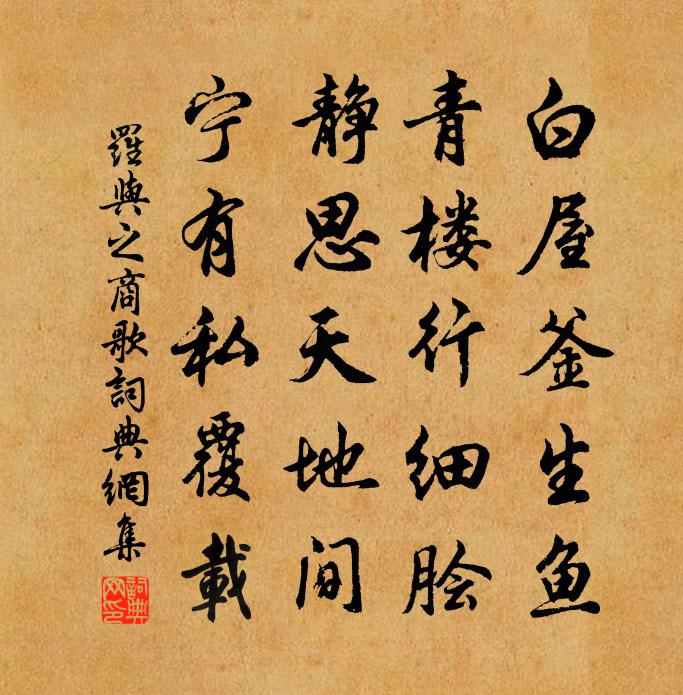 白屋釜生鱼
青楼行细脍
静思天地间
宁有私覆載
羅與之商歌詞典網集
詞典网印